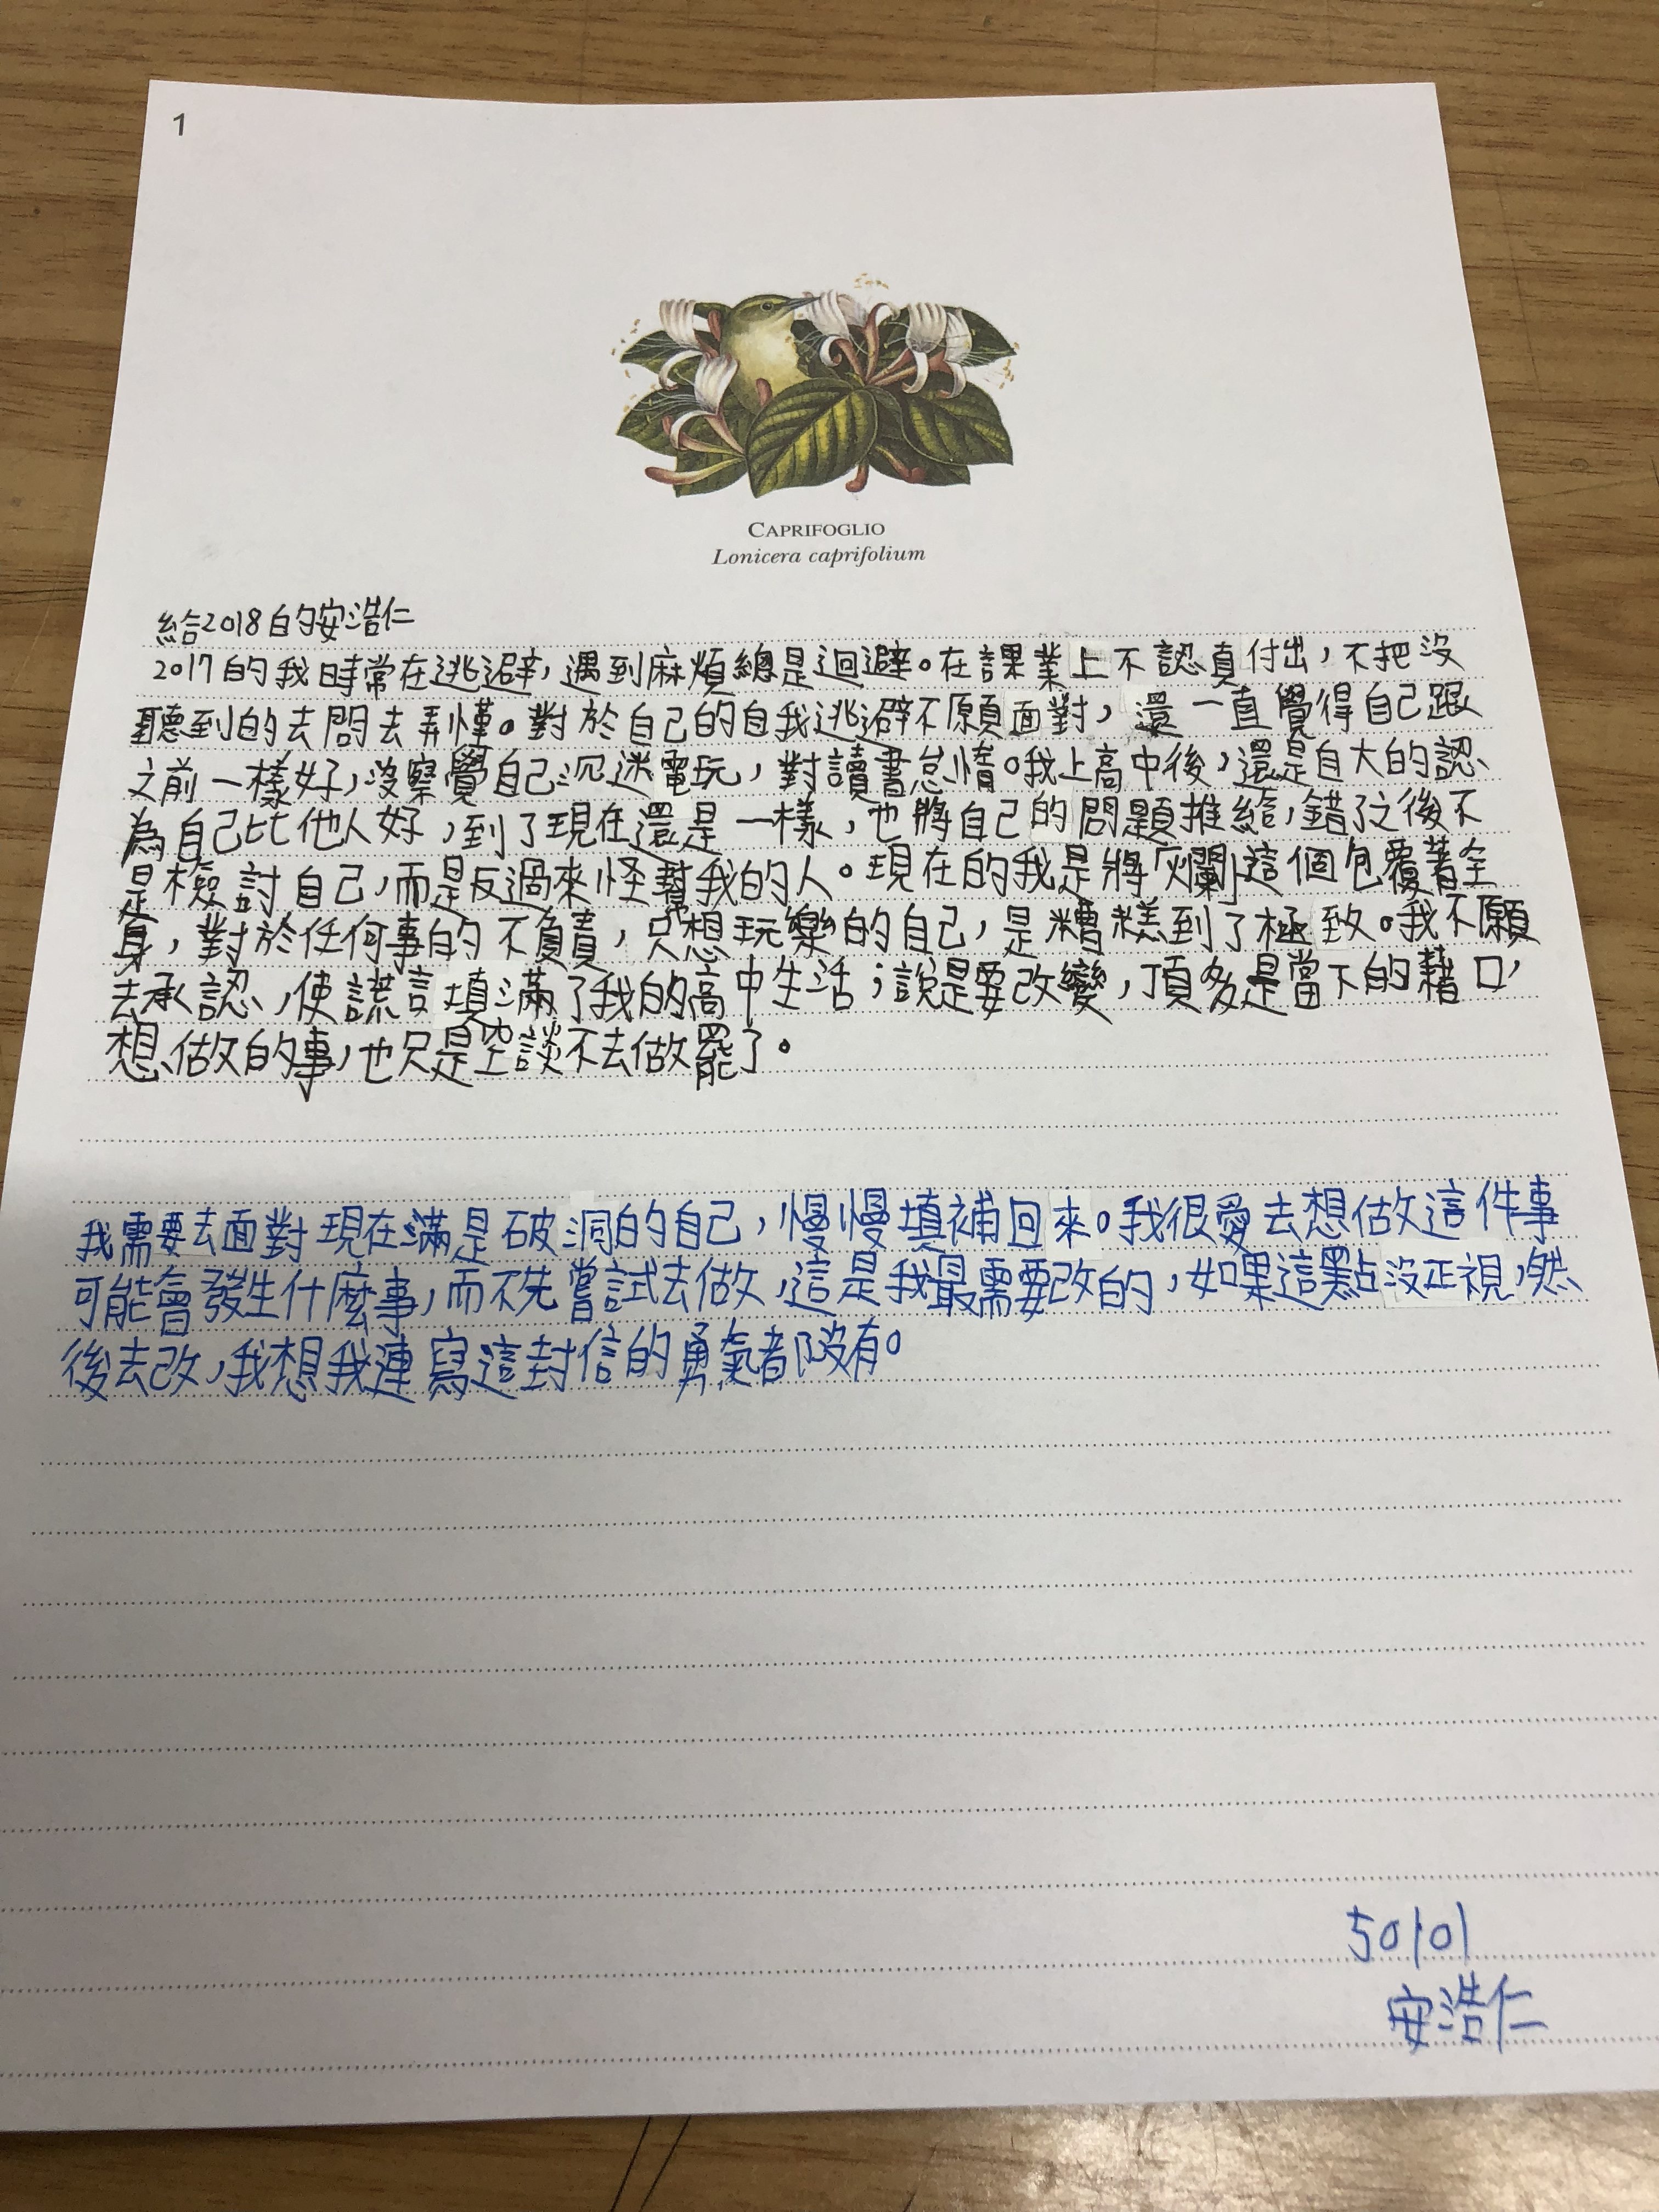 1
CAPRIFOGLIO
Lonicera caprifolium
給2018的安浩仁
2017的我時常在逃避，遇到麻煩總是迴避。在課業上不認真付出，不把沒
聽到的去問去弄懂。對於自己的自我逃避不願面對，還一直覺得自己跟
之前一樣好，沒察覺自己沉迷電玩，對讀書怠惰。我上高中後，還是自大的認
為自己比他人好，到了現在還是一樣，也將自己的問題推給，錯了之後不
是檢討自己，而是反過來怪幫我的人。現在的我是將灰爛這個包覆著全
身，對於任何事的不負責，只想玩樂的自己，是糟糕到了極致。我不願
去承認，使謊言填滿了我的高中生活；說是要改變，頂多是當下的藉口，
想做的事，也只是空談不去做罷了。
我需要去面對現在滿是破洞的自己，慢慢填補回來。我很愛去想做這件事
可能會發生什麼事，而不先嘗試去做，這是我最需要改的，如果這點沒正視，然
後去改，我想我連寫這封信的勇氣都沒有。
50101
安浩仁